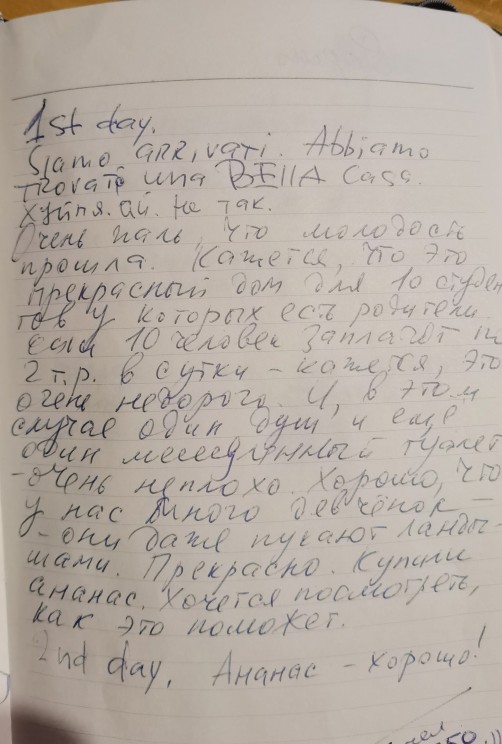 1st day.
Siamo arrivati. Abbiamo
trovato una BEllA casa.
Хуйня. Ай. Не так.
Очень жаль, что молодость
прошла. Кажется, что это
прекрасный дом для 10 студен
тов у которых есть родители.
Если 10 человек заплатят по
2 т.р. в сутки – кажется, это
очень недорого. И, в этом
случае один душ и ещё
один туалет
– очень неплохо. Хорошо, что
у нас много девчёнок –
– они даже пукают ланды-
шами. Прекрасно. Купили
ананас. Хочется посмотреть,
как это поможет.
2nd day. Ананас – хорошо!